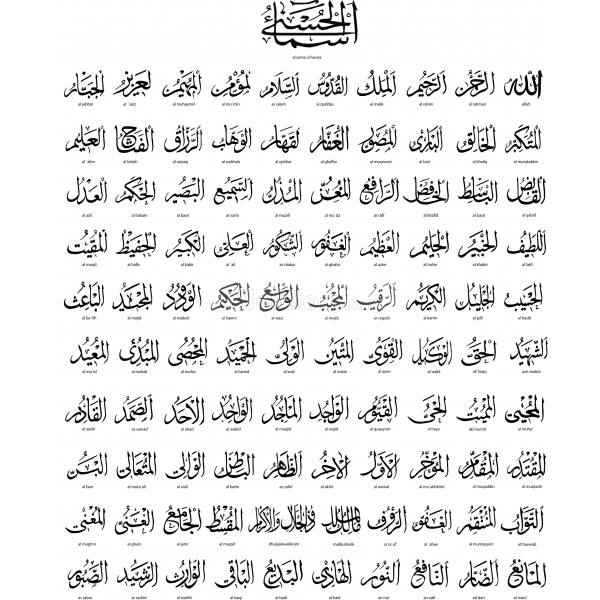 أسماء الحسنى
al asma ul husna
الله الرحمن الرحيم الملك القدوس السلام المؤمن المهيمن العزيز الجبار
allah al rahman al rahim al malik al quddus as salam al mu'min al muhaymin al `aziz al jabbar
المتكبر الخالق البارئ المصور الغفار القهار الوهاب الرزاق الفتاح العليم
al mutakabbir al khaliq al bari al musawwir al ghaffar al qahhar al wahhab al razzaq al fattah al `alim
القابض الباسط الخافض الرافع المعز المذل السميع البصير الحكم العدل
al qabid al basit al khafid ar rafi al mu`izz al muzill as sami al basir al hakam al adl
اللطيف الخبير الحليم العظيم الغفور الشكور العلي الكبير الحفيظ المقيت
al latif al khabir al halim al azim al ghafur as shakur al `ali al kabir al hafiz al muqit
الحسيب الجليل الكريم الرقيب المجيب الواسع الحكيم الودود المجيد الباعث
al hasib al jalil al karim ar raquib al mujib al wasi` al hakim al wadud al majid al ba`ith
الشهيد الحق الوكيل القوي المتين الولي الحميد المحصي المبدئ المعيد
ash shahid al haqq al wakil al qawi al matin al wali al hamid al muhsi al mubdi al mu'id
المحيي المميت الحي القيوم الواجد الماجد الواحد الاحد الصمد القادر
al muhyi al mumit al hayy al quayyum al wajid al maajid al wahid al ahad as samad al qadir
المقتدر المقدم المؤخر الأول الآخر الظاهر الباطن الوالي المتعالي البر
al muqtadir al muqaddim al mu akhkhir al awwal al akhir az zahir al batin al wali al muta'ali al barr
التواب المنتقم العفو الرؤوف مالك الملك ذو الجلال والإكرام المقسط الجامع الغني المغني
at tawwab al muntaqim al `afuw ar ra`uf malikulmulk dhuljalalwalikram al muqsit al jami` al ghani al mughni
المانع الضار النافع النور الهادي البديع الباقي الوارث الرشيد الصبور
al mani` ad darr an nafi an nur al hadi al badi al baqi al warith ar rashid as sabur